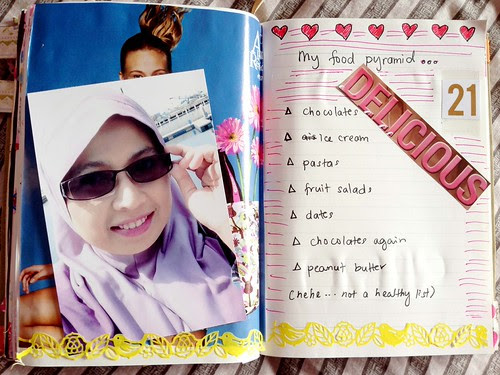 My food pyramid...
DELICIOUS
21
chocolates
ice cream
pastas
fruit salads
dates
chocolates again
peanut butter
(hehe... not a healthy list)